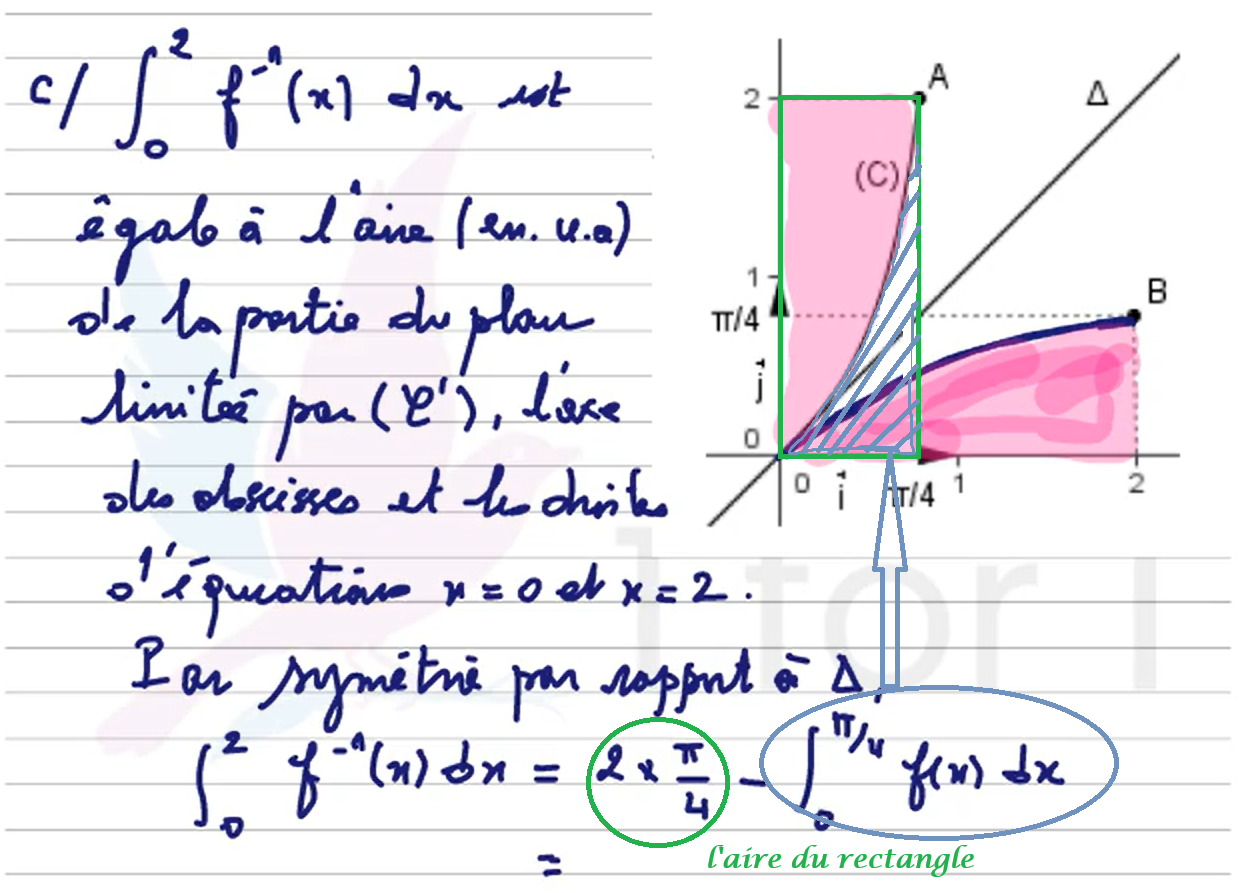 c/ ∫₀² f⁻¹(x) dx est
égale à l'aire (en. u.a)
de la partie du plan
limitée par (C'), l'axe
des abscisses et les droites
d'équations x = 0 et x = 2.
Par symétrie par rapport à Δ,
∫₀² f⁻¹(x) dx = 2 × π/4 - ∫₀^π/4 f(x) dx
=
l'aire du rectangle
A
Δ
2
(C)
1
B
π/4
j
0
0
i
π/4
1
2